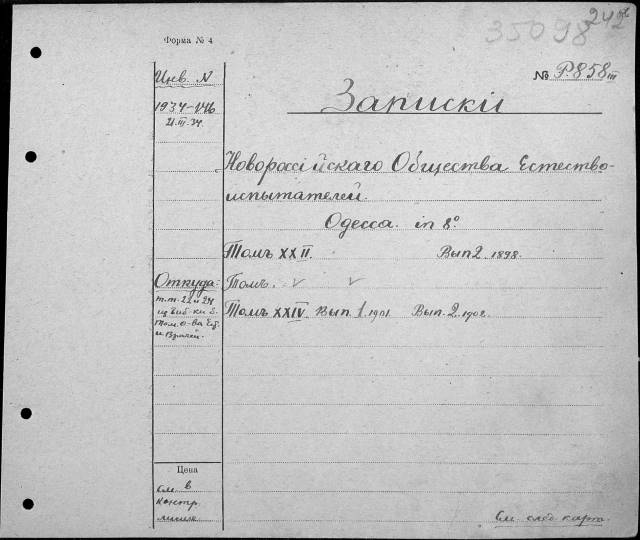 35098
242
Форма № 4
Инв. N
1934-146
21.III.34.
№ P.858 III
Записки
Новороссійскаго Общества Естество-
испытателей.
Одесса. in 8°
Томъ XXII. Вып 2. 1898.
Откуда: Томъ. v v
т.т. 22 и 24
из биб-ки б.
Томъ XXIV. Вып. 1. 1901. Вып. 2. 1902.
Цена
см. в
контр.
См. след. карта.